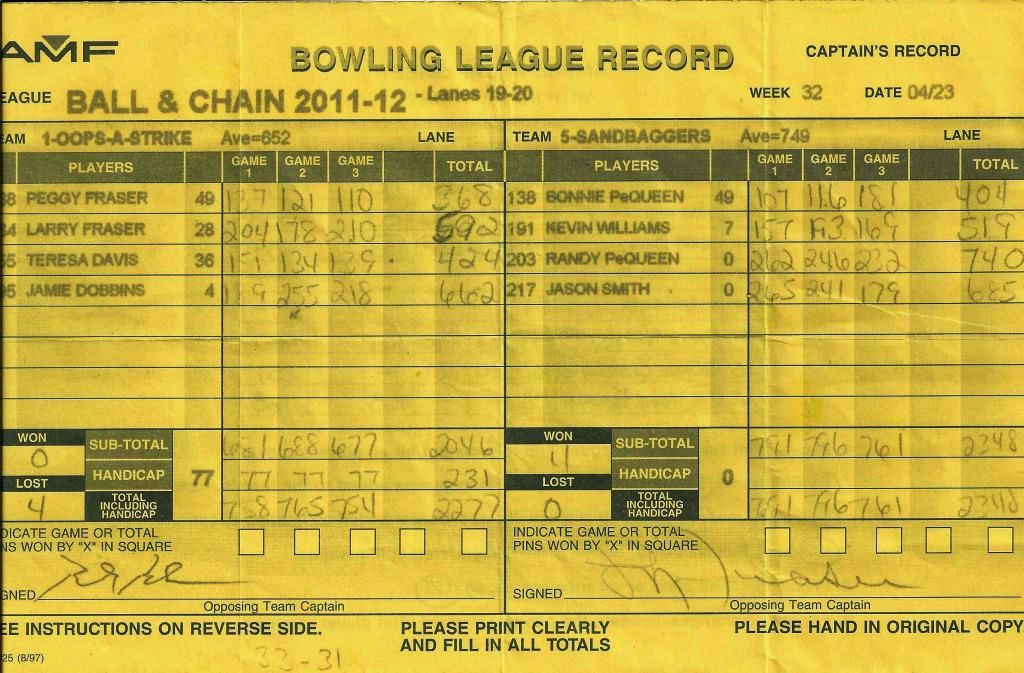 AMF BOWLING LEAGUE RECORD CAPTAIN'S RECORD
EAGUE BALL & CHAIN 2011-12 - Lanes 19-20 WEEK 32 DATE 04/23
EAM 1-OOPS-A-STRIKE Ave=652 LANE TEAM 5-SANDBAGGERS Ave=749 LANE
PLAYERS GAME 1 GAME 2 GAME 3 TOTAL PLAYERS GAME 1 GAME 2 GAME 3 TOTAL
8 PEGGY FRASER 49 137 121 110 368 138 BONNIE PeQUEEN 49 107 116 181 404
4 LARRY FRASER 28 204 178 210 592 191 KEVIN WILLIAMS 7 157 193 169 519
5 TERESA DAVIS 36 151 134 139 424 203 RANDY PeQUEEN 0 262 246 232 740
5 JAMIE DOBBINS 4 189 255 218 662 217 JASON SMITH 0 265 241 179 685
WON 0 SUB-TOTAL 681 688 677 2046 WON 4 SUB-TOTAL 791 796 761 2348
HANDICAP 77 77 77 77 231 HANDICAP 0
LOST 4 TOTAL INCLUDING HANDICAP 758 765 754 2277 LOST 0 TOTAL INCLUDING HANDICAP 791 796 761 2348
DICATE GAME OR TOTAL INDICATE GAME OR TOTAL
NS WON BY "X" IN SQUARE PINS WON BY "X" IN SQUARE
GNED SIGNED
Opposing Team Captain Opposing Team Captain
EE INSTRUCTIONS ON REVERSE SIDE. PLEASE PRINT CLEARLY PLEASE HAND IN ORIGINAL COPY
AND FILL IN ALL TOTALS
25 (8/97) 33-31